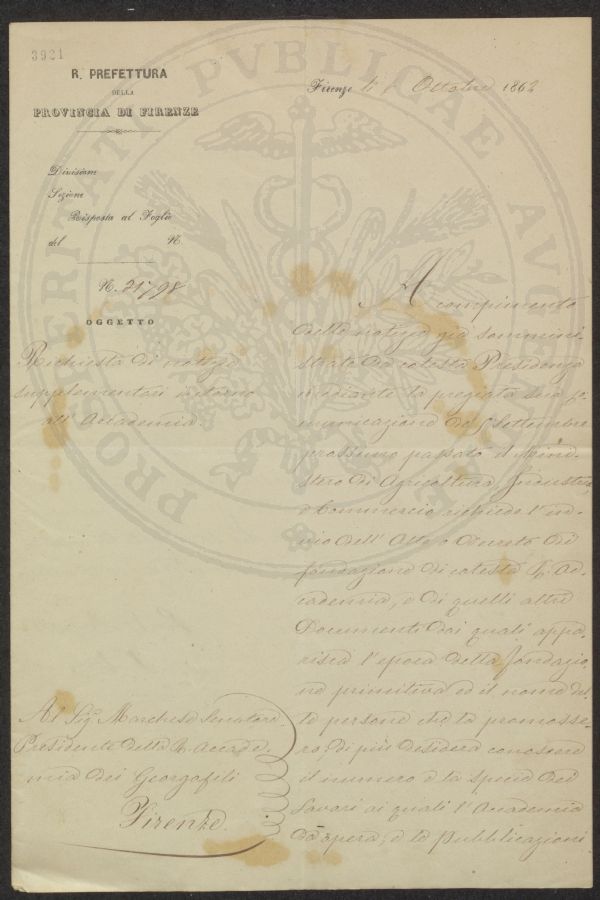 3921
R. PREFETTURA
DELLA
PROVINCIA DI FIRENZE
Firenze li Ottobre 1862
Divisione
Sezione
Risposta al Foglio
del N.
N. 21798
OGGETTO
Richiesta di notizie
supplementari intorno
all' Accademia.
A compimento
delle notizie già sommini-
strate da cotesta Presidenza
mediante la pregiata sua co-
municazione del 5 Settembre
prossimo passato il Mini-
stero di Agricoltura, Industria,
e Commercio richiede l'in-
vio dell' Atto o Decreto di
fondazione di cotesta R. Ac-
cademia, e di quelli altri
Documenti dai quali appa-
risca l'epoca della fondazio-
ne primitiva ed il nome del-
le persone che la promosse-
ro; di più desidera conoscere
il numero e la specie dei
lavori ai quali l'Accademia
dà opera, e le Pubblicazioni
Al Sig. Marchese Senatore
Presidente della R. Accade-
mia dei Georgofili
Firenze
PROSPERITATI PVBLICAE AVGENDAE